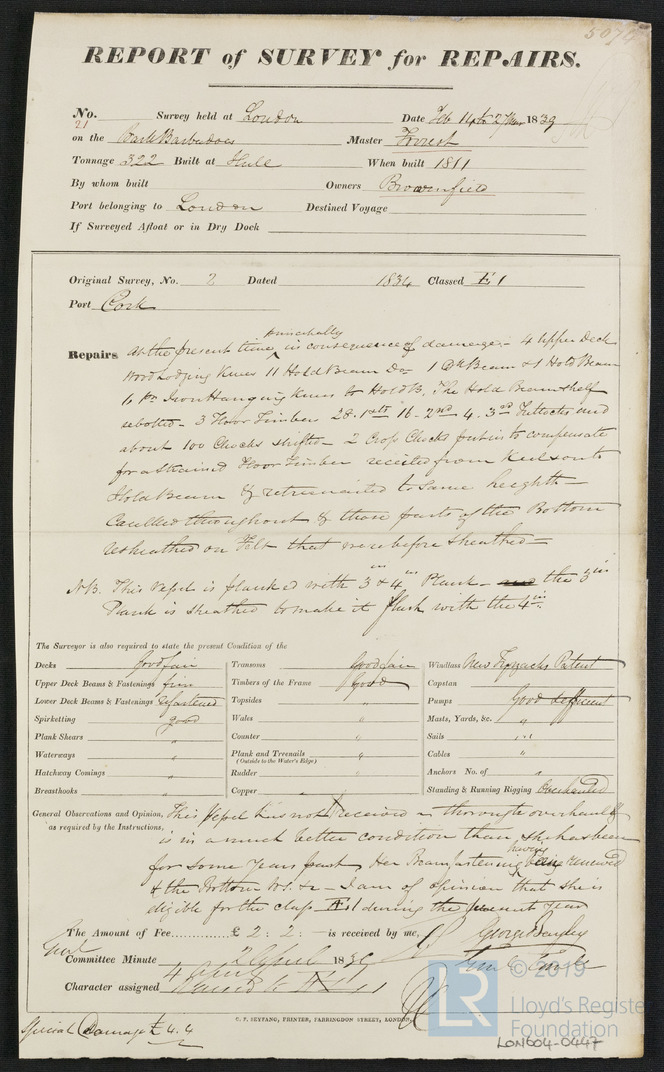 5074
REPORT of SURVEY for REPAIRS.
No. 21 Survey held at London Date Feb 14 to 27 Mar 1839
on the Bark Barbadoes Master Forrest
Tonnage 322 Built at Hull When built 1811
By whom built Owners Brownfield
Port belonging to London Destined Voyage
If Surveyed Afloat or in Dry Dock
Original Survey, No. 2 Dated 1834 Classed Æ 1
Port Cork
Repairs At the present time principally in consequence of damage:- 4 Upper Deck
Wood Lodging Knees 11 Hold Beam Do 1 Dk Beam & 1 Hold Beam
6 Iron Hanging Knees to Hold B. The Hold Beam shelf
rebolted - 3 Floor Timbers 28. 1st 16 - 2nd 4. 3rd Futtocks and
about 100 Chocks shifted - 2 Cross Chocks put in to compensate
for a strained Floor Timber from Keelson to
Hold Beam & to same heighth
Caulked throughout & those parts of the Bottom
resheathed on Felt that were before sheathed
NB. This Vessel is plank'd with 3 in & 4 in Plank - the 3 in
Plank is sheathed to make it flush with the 4 in
The Surveyor is also required to state the present Condition of the
Decks Good fair Transoms Good fair Windlass New Tyzacks Patent
Upper Deck Beams & Fastenings firm Timbers of the Frame Good Capstan
Lower Deck Beams & Fastenings Refastened Topsides " Pumps Good & efficient
Spirketting good Wales " Masts, Yards, &c. "
Plank Shears " Counter " Sails "
Waterways " Plank and Treenails " Cables "
(Outside to the Water's Edge)
Hatchway Comings " Rudder " Anchors No. of "
Breasthooks " Copper " Standing & Running Rigging Overhauled
General Observations and Opinion, This Vessel has not received a thorough overhaul &
as required by the Instructions, is in a much better condition than she has been
for some Years past Her Beam fastening having being renewed
& the Bottom &c - I am of opinion that she is
eligible for the class Æ 1 during the present year
The Amount of Fee £ 2 : 2 : - is received by me, George Bayley
Committee Minute 2 April 1839
4 April
Character assigned Æ 1
C. F. SEYFANG, PRINTER, FARRINGDON STREET, LONDON.
Special Damage £ 4.4
LR © 2019
Lloyd's Register
Foundation
LON604-0447